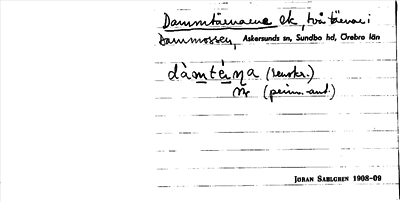 Dammtärnarna sk, två tärnar i
Dammossen, Askersunds sn, Sundbo hd, Örebro län
dàmtèṇa (renskr.)
ṇ (prim.-ant.)
JÖRAN SAHLGREN 1908-09